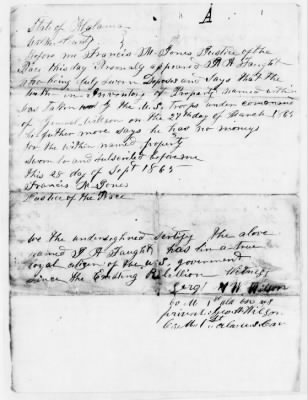 A
State of Alabama
Walker County
Before me Francis M. Jones, Justice of the
Pece this day Personly appeared R A Faught
who being July sworn Deposes and Says that the
within inventory of Property named within
was taken by the U.S. Troops under command
of General Wilson on the 27th day of March 1865
further more says he has no moneys
for the within named property
Sworn to and subscribed before me
this 28 day of Sept 1865
Francis M Jones
Justice of the Peace
We the undersighned certify the above
named R A Faught has bin a true
loyal citizen of the U.S. government
since the Existing Rebellion Witness
Sergt W Wilson
Co M 1st ala cav vs
private Geo H Wilson
Co M 1st Alabama Cav